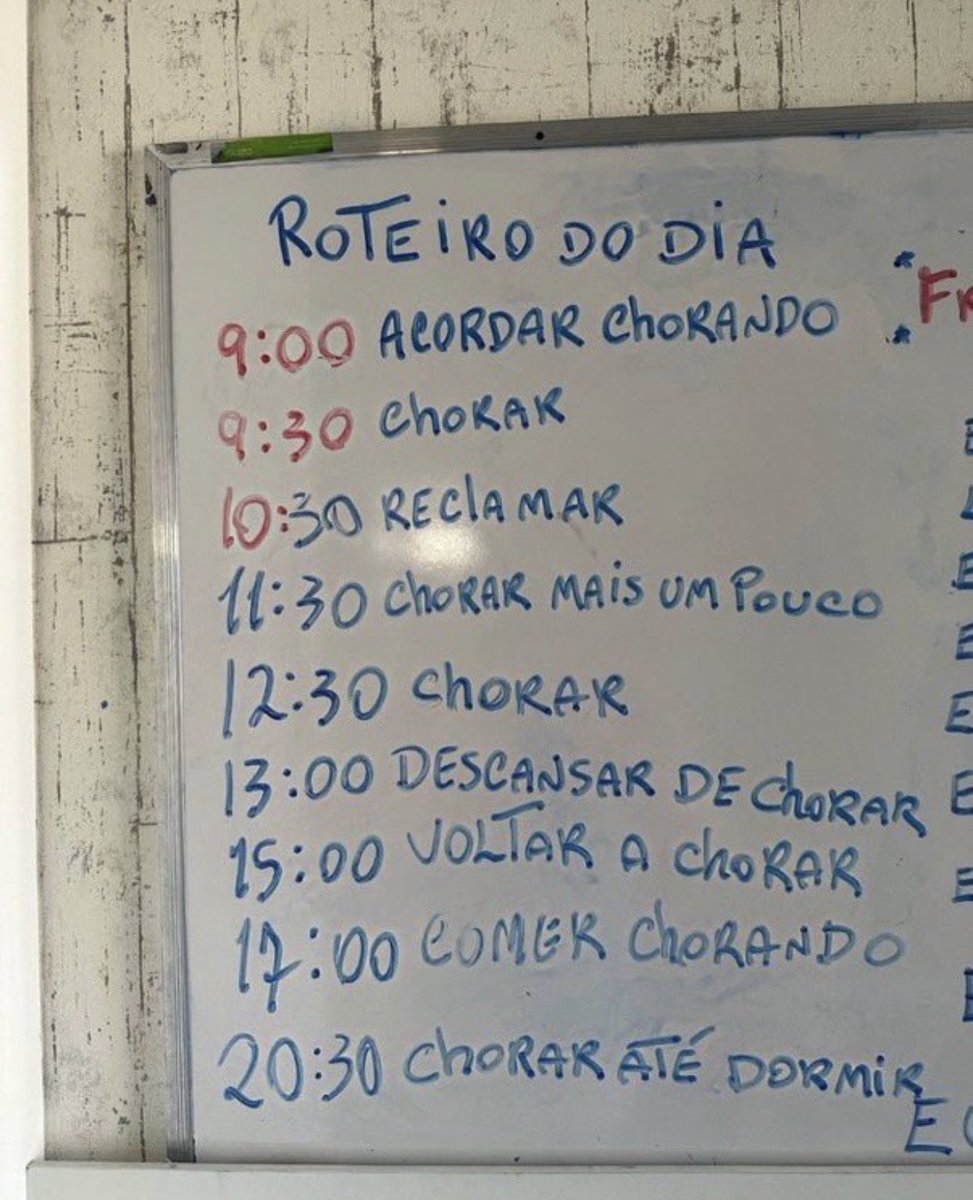 ROTEIRO DO DIA
9:00 ACORDAR CHORANDO
9:30 CHORAR
10:30 RECLAMAR
11:30 CHORAR MAIS UM POUCO
12:30 CHORAR
13:00 DESCANSAR DE CHORAR
15:00 VOLTAR A CHORAR
17:00 COMER CHORANDO
20:30 CHORAR ATÉ DORMIR